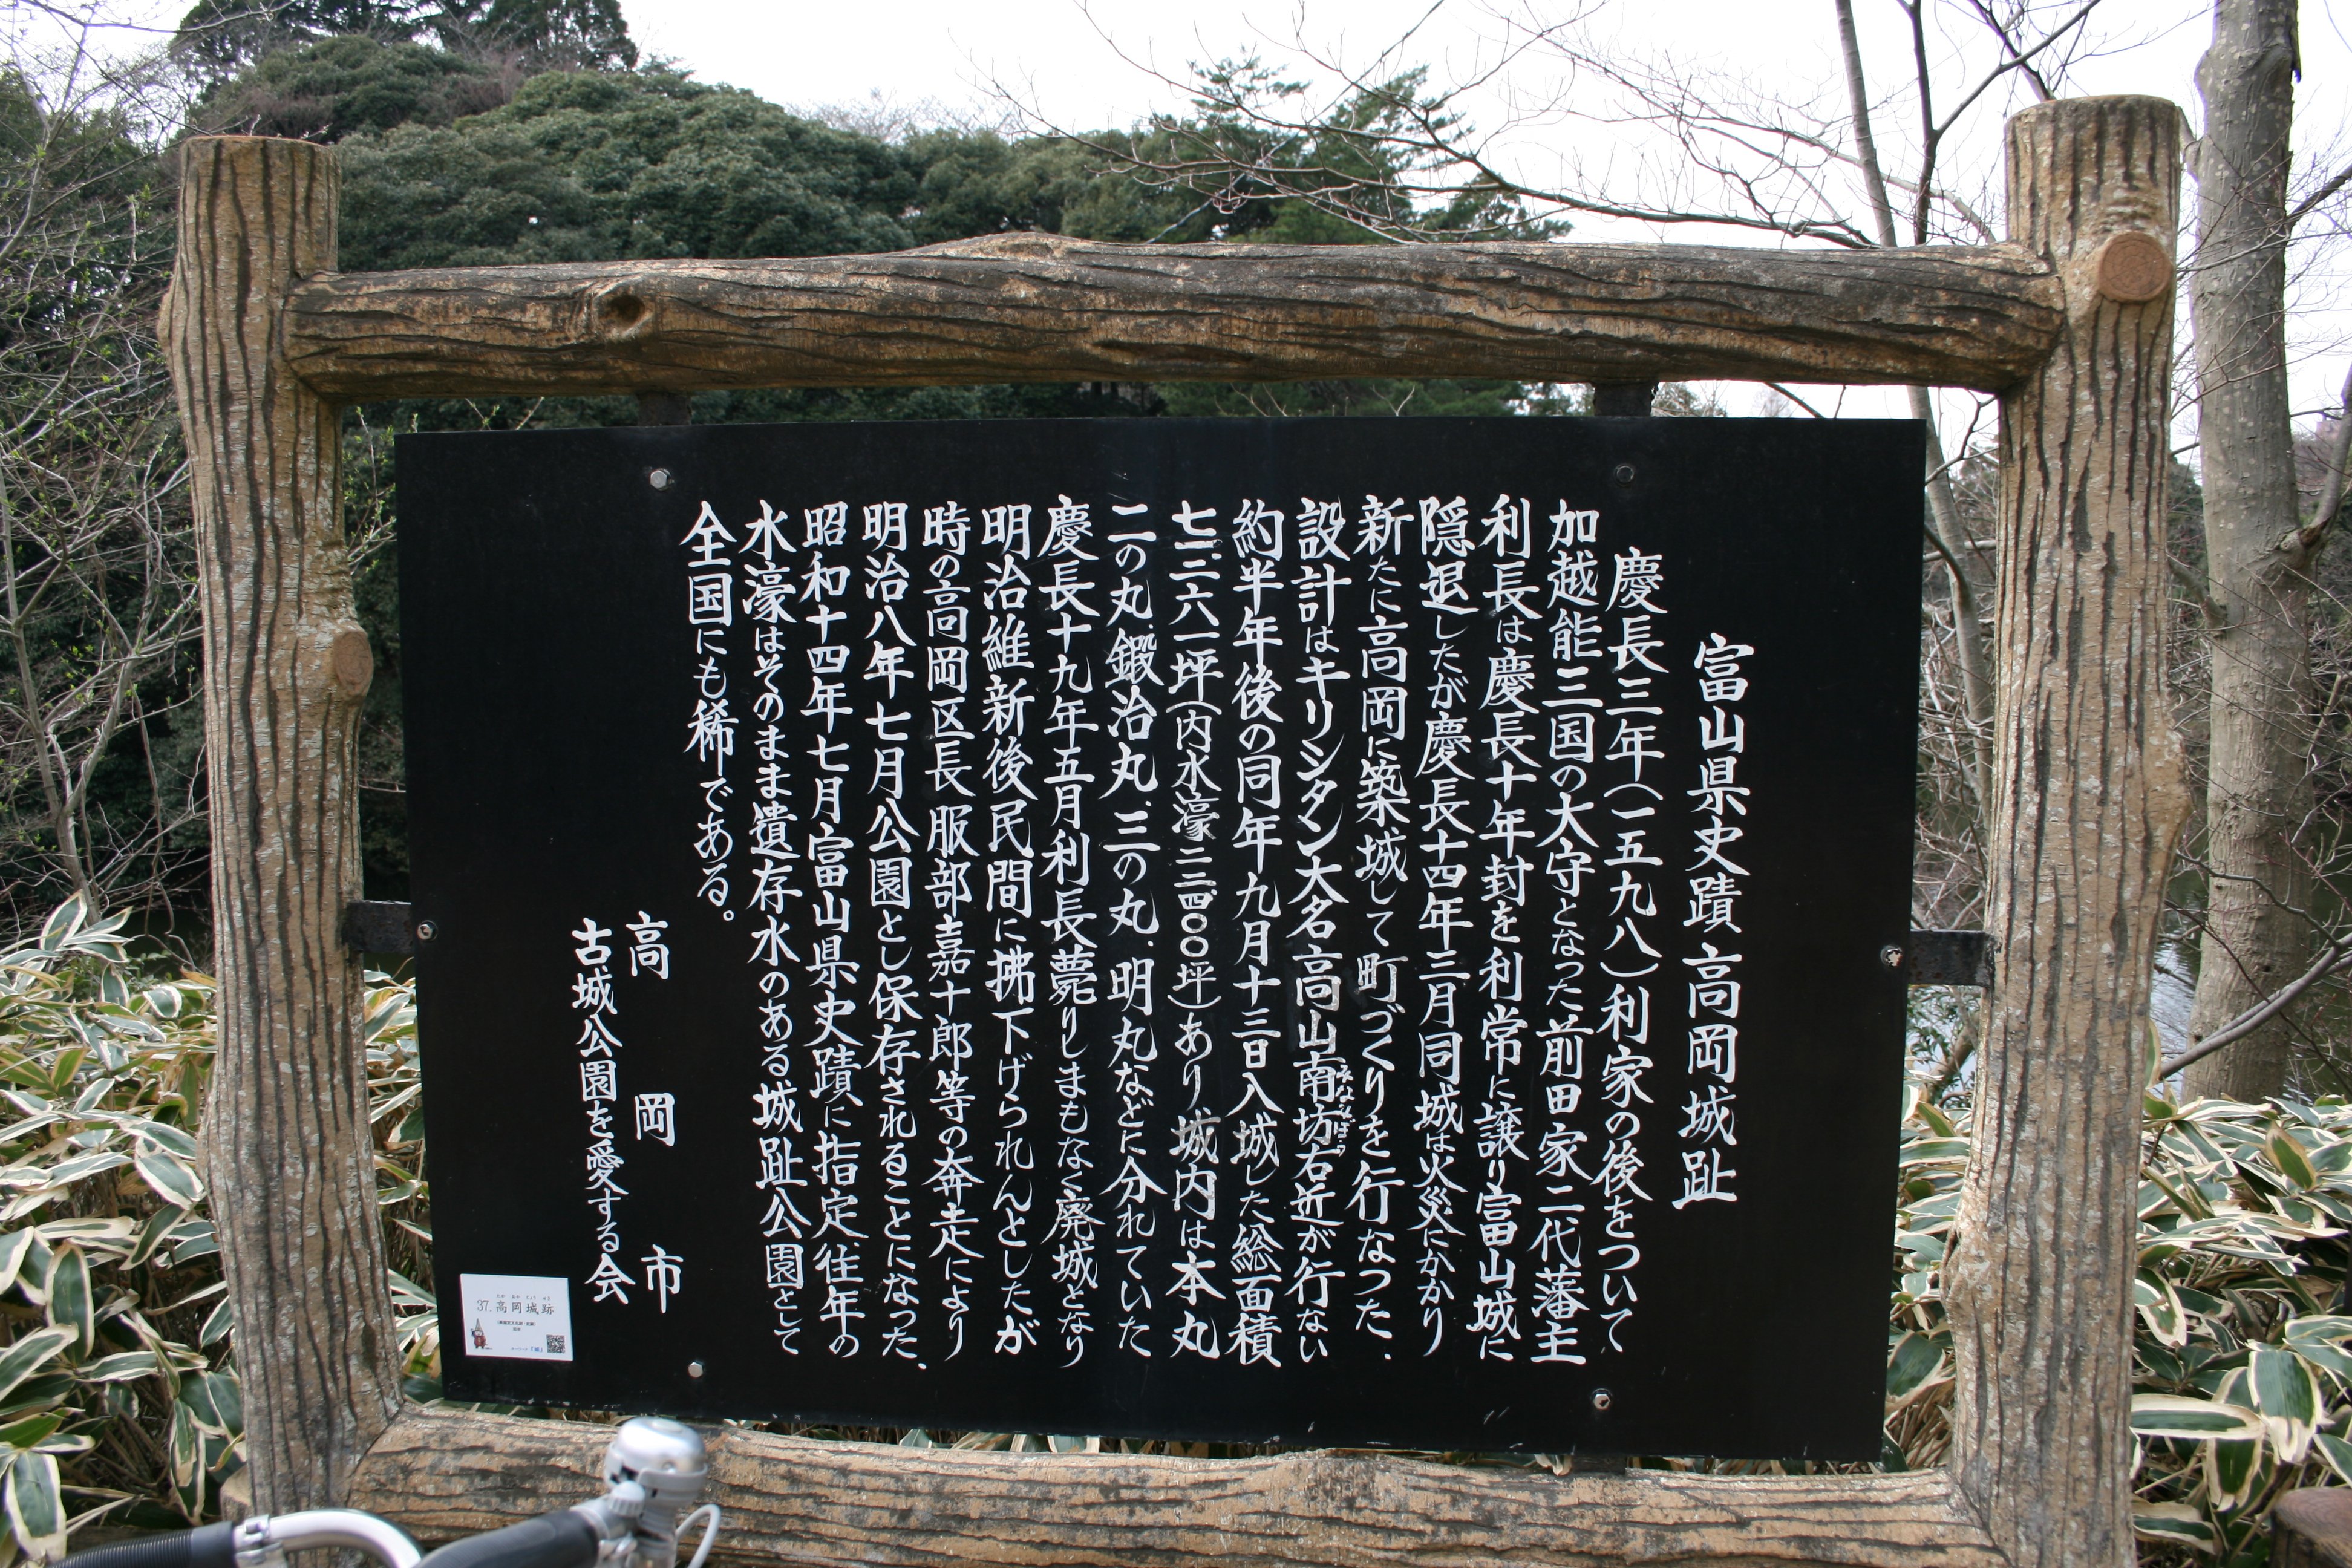 富山県史蹟 高岡城趾
慶長三年(一五九八)利家の後をついて
加越能三国の大守となった前田家二代藩主
利長は慶長十年封を利常に譲り富山城に
隠退したが慶長十四年三月同城は火災にかかり
新たに高岡に築城して町づくりを行なった.
設計はキリシタン大名高山南坊右近が行ない
みなみぼう
約半年後の同年九月十三日入城した総面積
七二、二六一坪(内水濠二二、四〇〇坪)あり城内は本丸
二の丸.鍛治丸.三の丸.明丸などに分れていた
慶長十九年五月利長薨りしまもなく廃城となり
明治維新後民間に拂下げられんとしたが
時の高岡区長服部嘉十郎等の奔走により
明治八年七月公園とし保存されることになった、
昭和十四年七月富山県史蹟に指定往年の
水濠はそのまま遺存水のある城趾公園として
全国にも稀である。
高岡市
古城公園を愛する会
37.高岡城跡